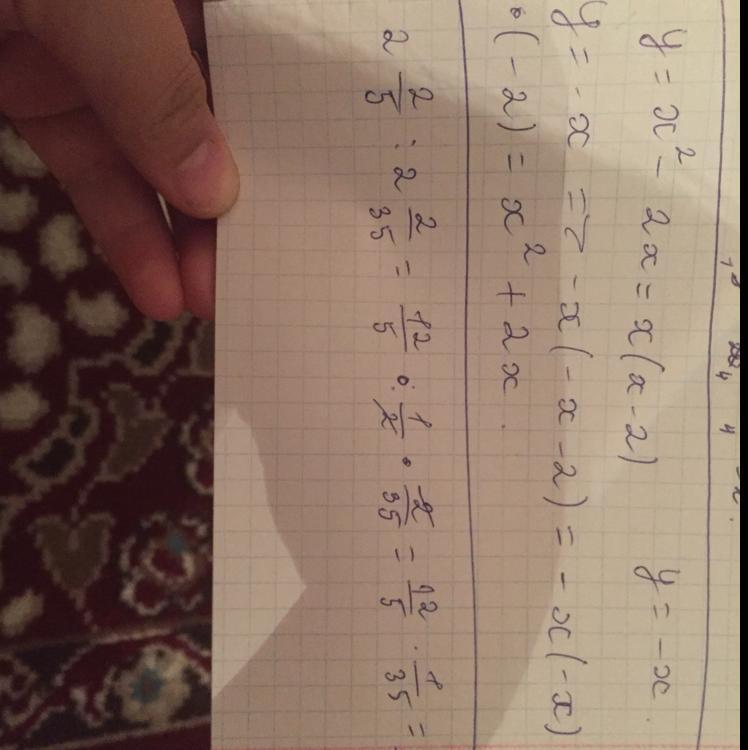 y = x² - 2x = x(x-2) y = -x.
y = -x => -x(-x-2) = -x(-x)
·(-2) = x² + 2x.
2 2/5 : 2 2/35 = 12/5 : 1/2 · 2/35 = 12/5 · 1/35 =